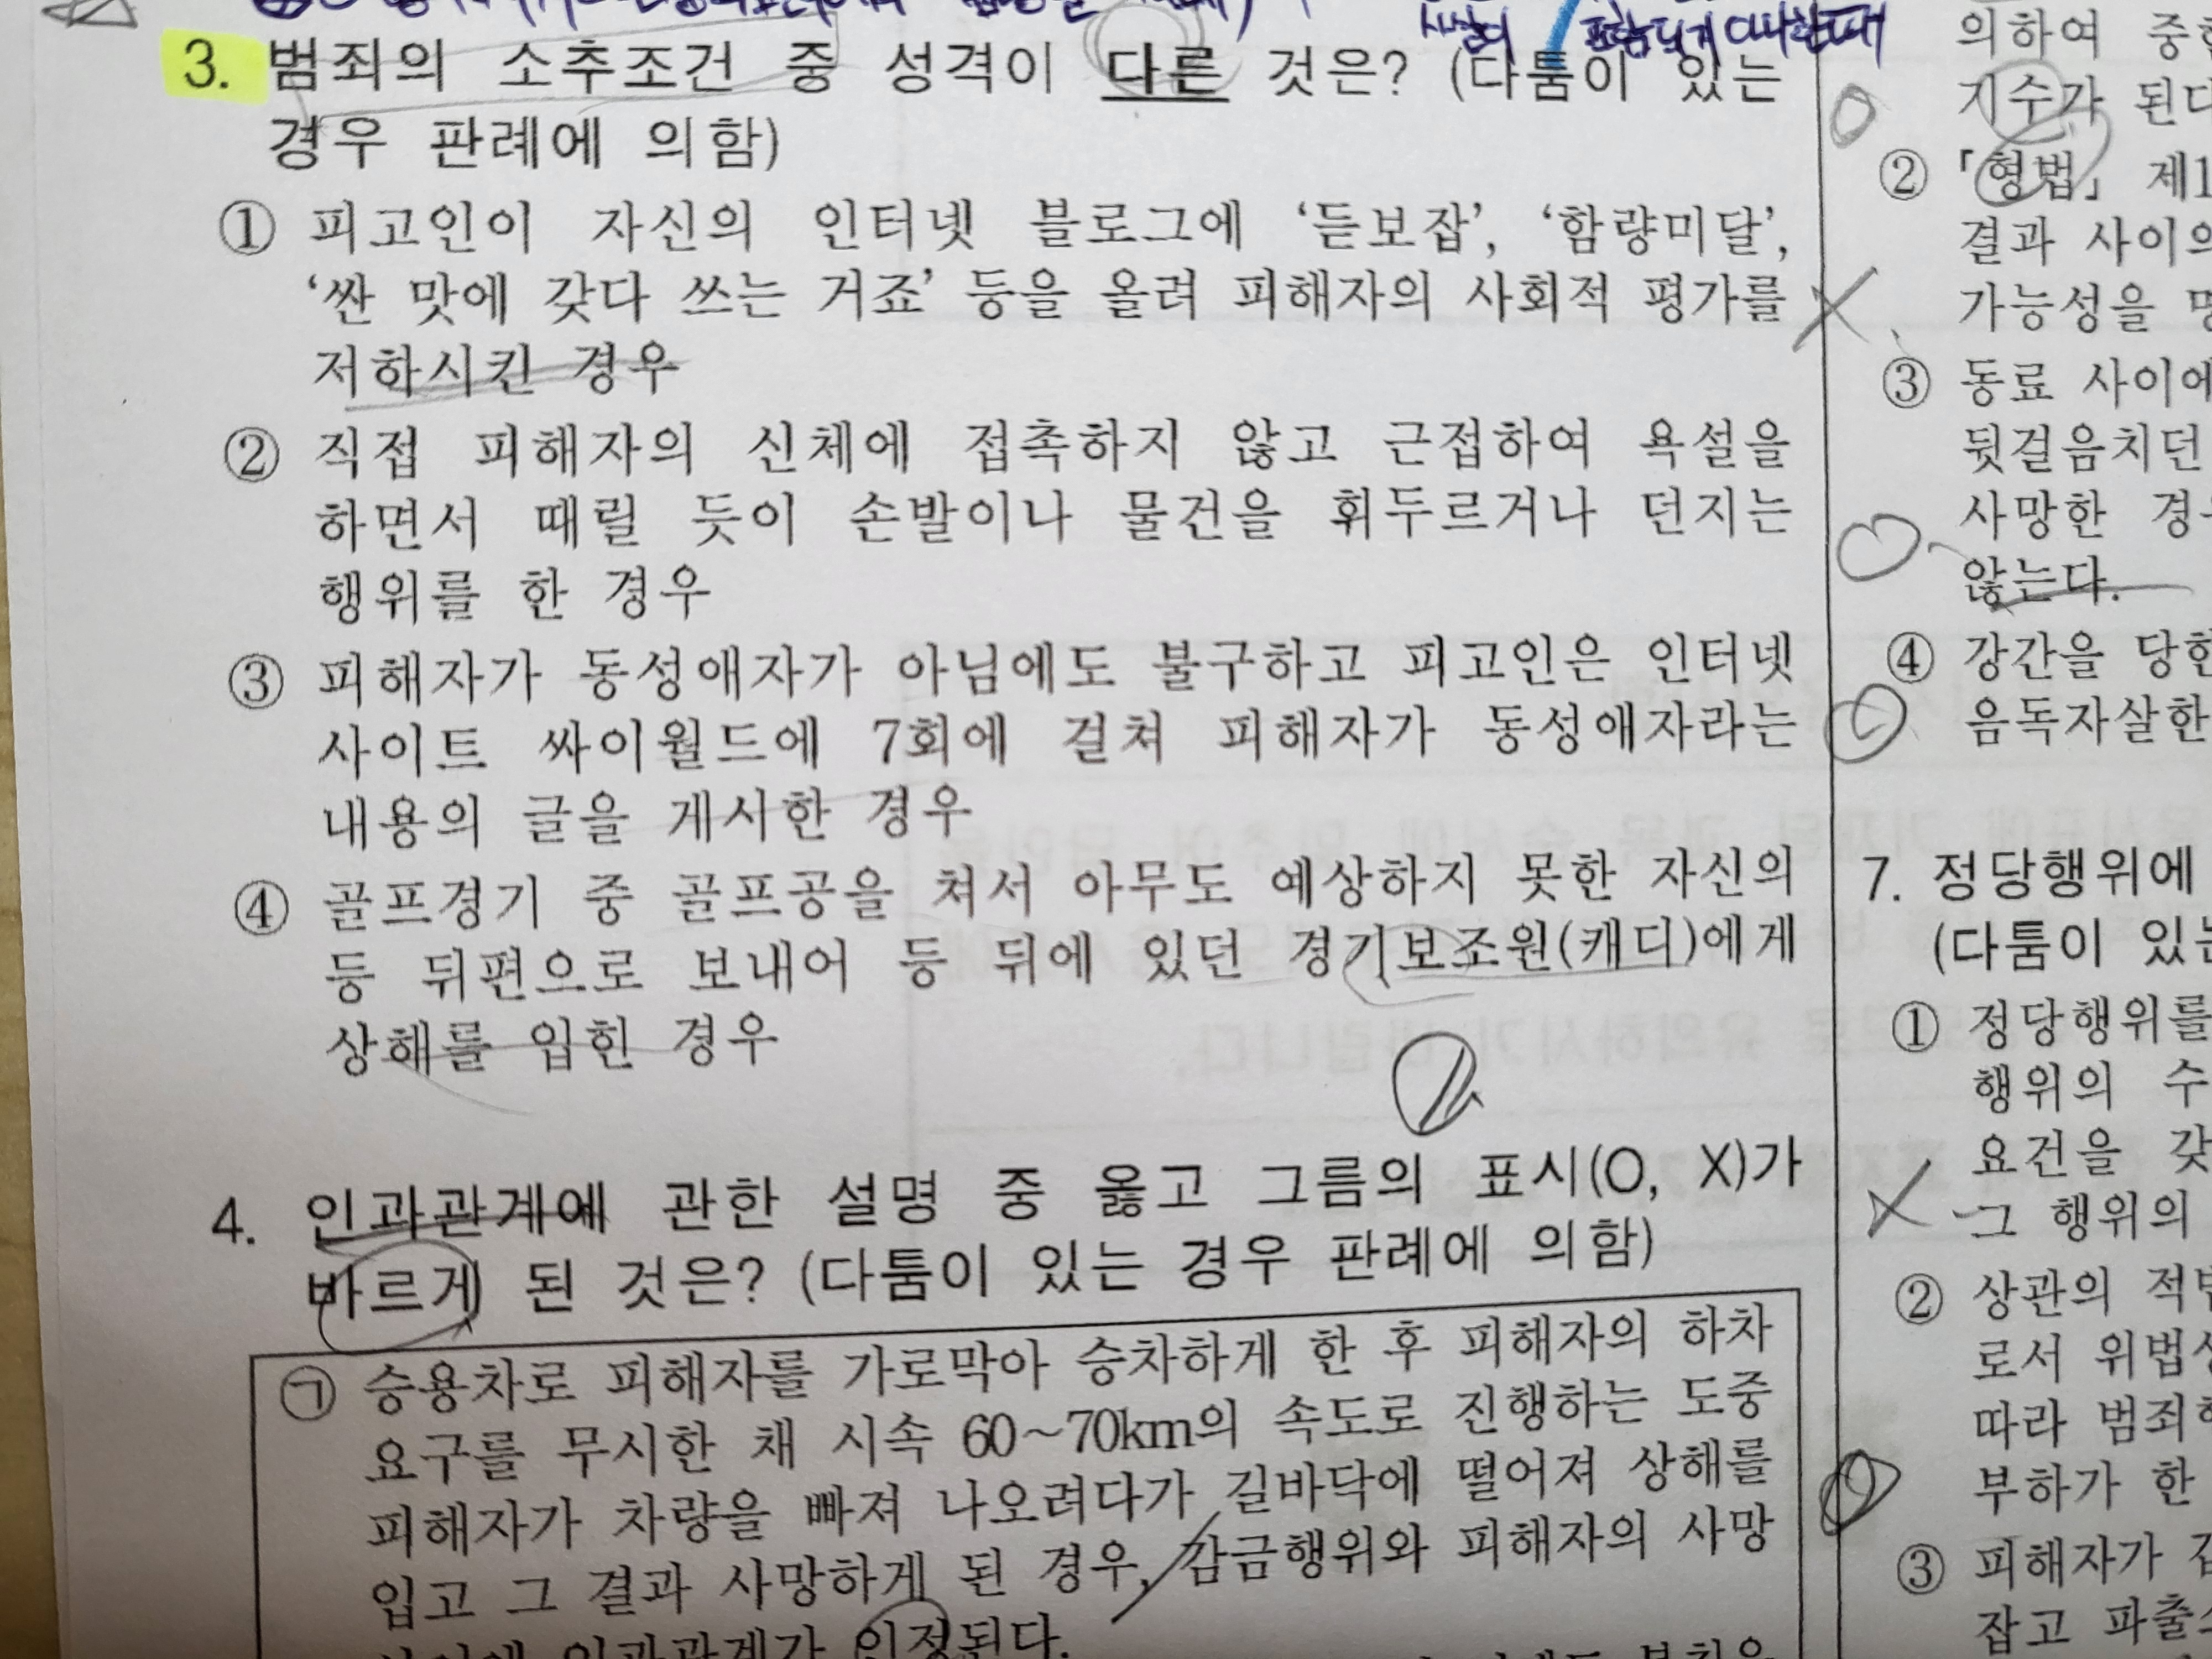 3. 범죄의 소추조건 중 성격이 다른 것은? (다툼이 있는
경우 판례에 의함)
① 피고인이 자신의 인터넷 블로그에 ‘듣보잡’, ‘함량미달’,
‘싼 맛에 갖다 쓰는 거죠’ 등을 올려 피해자의 사회적 평가를
저하시킨 경우
② 직접 피해자의 신체에 접촉하지 않고 근접하여 욕설을
하면서 때릴 듯이 손발이나 물건을 휘두르거나 던지는
행위를 한 경우
③ 피해자가 동성애자가 아님에도 불구하고 피고인은 인터넷
사이트 싸이월드에 7회에 걸쳐 피해자가 동성애자라는
내용의 글을 게시한 경우
④ 골프경기 중 골프공을 쳐서 아무도 예상하지 못한 자신의
등 뒤편으로 보내어 등 뒤에 있던 경기보조원(캐디)에게
상해를 입힌 경우
4. 인과관계에 관한 설명 중 옳고 그름의 표시(O, X)가
바르게 된 것은? (다툼이 있는 경우 판례에 의함)
㉠ 승용차로 피해자를 가로막아 승차하게 한 후 피해자의 하차
요구를 무시한 채 시속 60∼70km의 속도로 진행하는 도중
피해자가 차량을 빠져 나오려다가 길바닥에 떨어져 상해를
입고 그 결과 사망하게 된 경우, 감금행위와 피해자의 사망
인과관계가 인정된다.
의하여
지수가 된다
② 「형법」 제1
결과 사이의
가능성을
③ 동료 사이에
뒷걸음치던
사망한
않는다.
④ 강간을 당한
음독자살한
7. 정당행위에
(다툼이 있는
① 정당행위를
행위의 수
요건을 갖
그 행위의
② 상관의 적법
로서 위법성
따라 범죄행
부하가 한
③ 피해자가
잡고 파출소